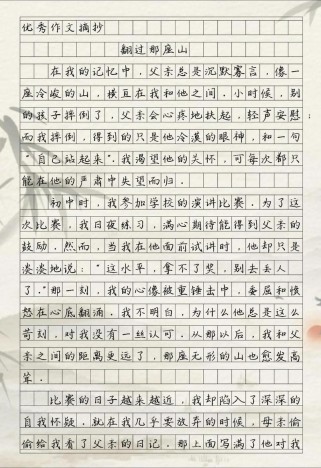 优秀作文摘抄
翻过那座山
在我的记忆中，父亲总是沉默寡言，像一
座冷峻的山，横亘在我和他之间。小时候，别
的孩子摔倒了，父亲会心疼地扶起，轻声安慰；
而我摔倒，得到的只是他冷漠的眼神，和一句
“自己站起来”。我渴望他的关怀，可每次都只
能在他的严肃中失望而归。
初中时，我参加学校的演讲比赛，为了这
次比赛，我日夜练习，满心期待能得到父亲的
鼓励。然而，当我在他面前试讲时，他却只是
淡淡地说：“这水平，拿不了奖，别去丢人
了。”那一刻，我的心像被重锤击中，委屈和愤
怒在心底翻涌。我不明白，为什么他总是这么
苛刻，对我没有一丝认可。从那以后，我和父
亲之间的距离更远了，那座无形的山也愈发高
耸。
比赛的日子越来越近，我却陷入了深深的
自我怀疑，就在我几乎要放弃的时候，母亲偷
偷给我看了父亲的日记。那上面写满了他对我